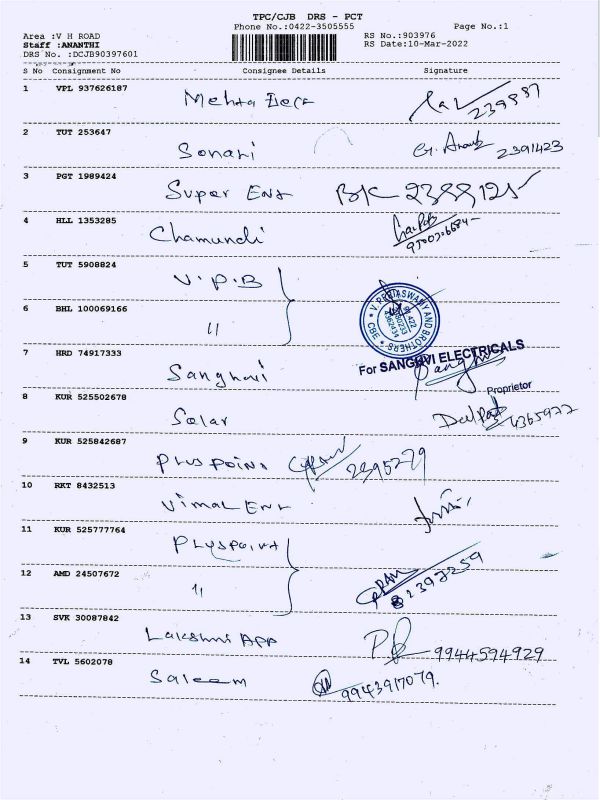 TPC/CJB DRS - PCT
Phone No.:0422-3505555 Page No.:1
Area :V H ROAD RS No.:903976
Staff :ANANTHI RS Date:10-Mar-2022
DRS No. :DCJB90397601
S No Consignment No Consignee Details Signature
1 VPL 937626187 Mehta Elec 239887
2 TUT 253647 Sonari 2391423
3 PGT 1989424 Super Ent 2388125
4 HLL 1353285 Chamundi
5 TUT 5908824 V.P.B
6 BHL 100069166 11
V PERIASWAMY AND BROTHERS
CBE
For SANGHVI ELECTRICALS
7 HRD 74917333 Sanghavi
Proprietor
8 KUR 525502678 Solar 4365977
9 KUR 525842687 Pluspoint 2395279
10 RKT 8432513 Vimal Ent
11 KUR 525777764 Pluspoint
12 AMD 24507672 11 2397259
13 SVK 30087842 Lakshmi App 9944594929
14 TVL 5602078 Saleem 9943917079.